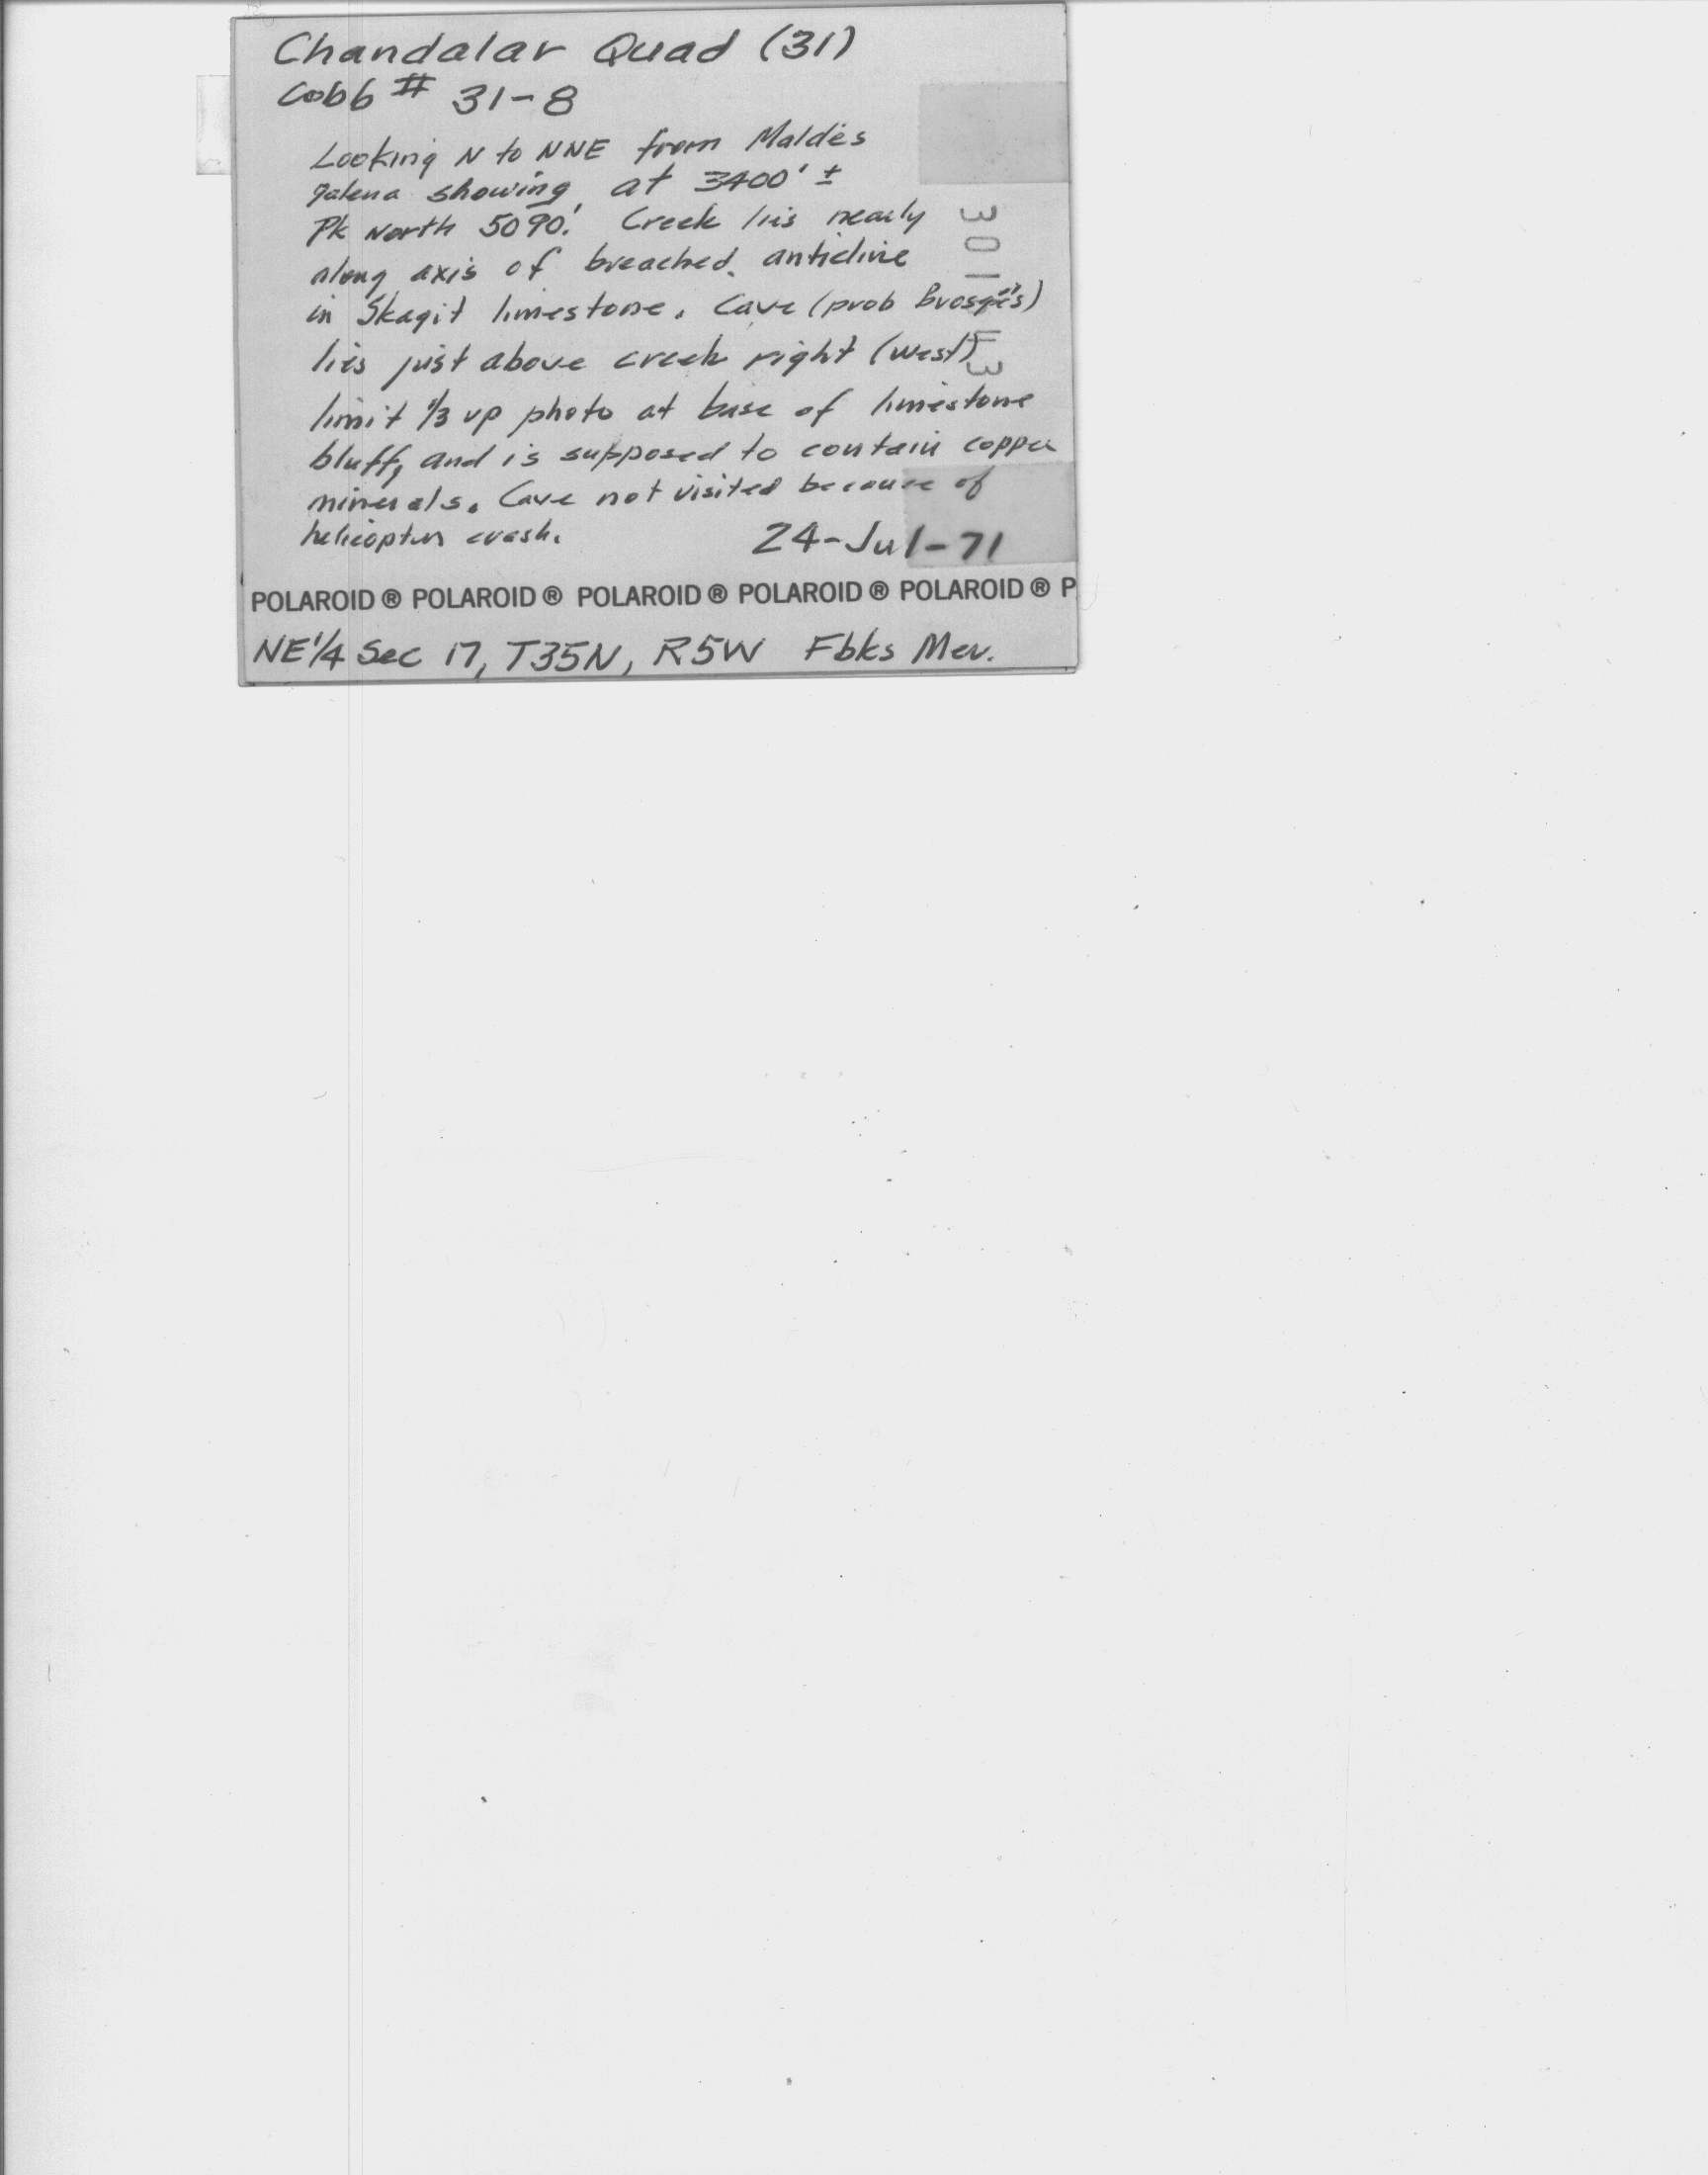 Chandalar Quad (31)
Cobb # 31-8
Looking N to NNE from Maldës
galena showing at 3400' ±
Pk North 5090'. Creek lies nearly
along axis of breached anticline
in Skagit limestone. Cave (prob Brosgé's)
lies just above creek right (west)
limit 1/3 up photo at base of limestone
bluff, and is supposed to contain copper
minerals. Cave not visited because of
helicopter crash.
24-Jul-71
POLAROID® POLAROID® POLAROID® POLAROID® POLAROID® P
NE 1/4 Sec 17, T35N, R5W Fbks Mer.